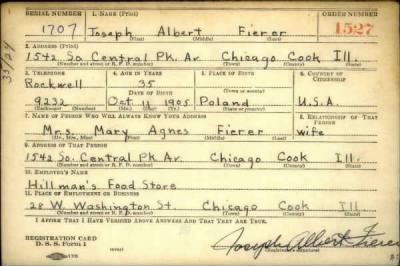 SERIAL NUMBER 1. NAME (Print) ORDER NUMBER
1707 Joseph Albert Fierer 1527
(First) (Middle) (Last)
2. ADDRESS (Print)
1542 So. Central Pk. Av. Chicago Cook Ill.
(Number and street or R. F. D. number) (Town) (County) (State)
3. TELEPHONE 4. AGE IN YEARS 5. PLACE OF BIRTH 6. COUNTRY OF CITIZENSHIP
Rockwell 35
DATE OF BIRTH
9232 Oct 11 1905 Poland U.S.A.
(Exchange) (Number) (Mo.) (Day) (Yr.) (State or country)
7. NAME OF PERSON WHO WILL ALWAYS KNOW YOUR ADDRESS 8. RELATIONSHIP OF THAT PERSON
Mrs. Mary Agnes Fierer wife
(Mr., Mrs., Miss) (First) (Middle) (Last)
9. ADDRESS OF THAT PERSON
1542 So. Central Pk. Av. Chicago Cook Ill.
(Number and street or R. F. D. number) (Town) (County) (State)
10. EMPLOYER'S NAME
Hillman's Food Store
11. PLACE OF EMPLOYMENT OR BUSINESS
28 W. Washington St. Chicago Cook Ill.
(Number and street or R. F. D. number) (Town) (County) (State)
I AFFIRM THAT I HAVE VERIFIED ABOVE ANSWERS AND THAT THEY ARE TRUE.
REGISTRATION CARD
D. S. S. Form 1 (over) Joseph Albert Fierer